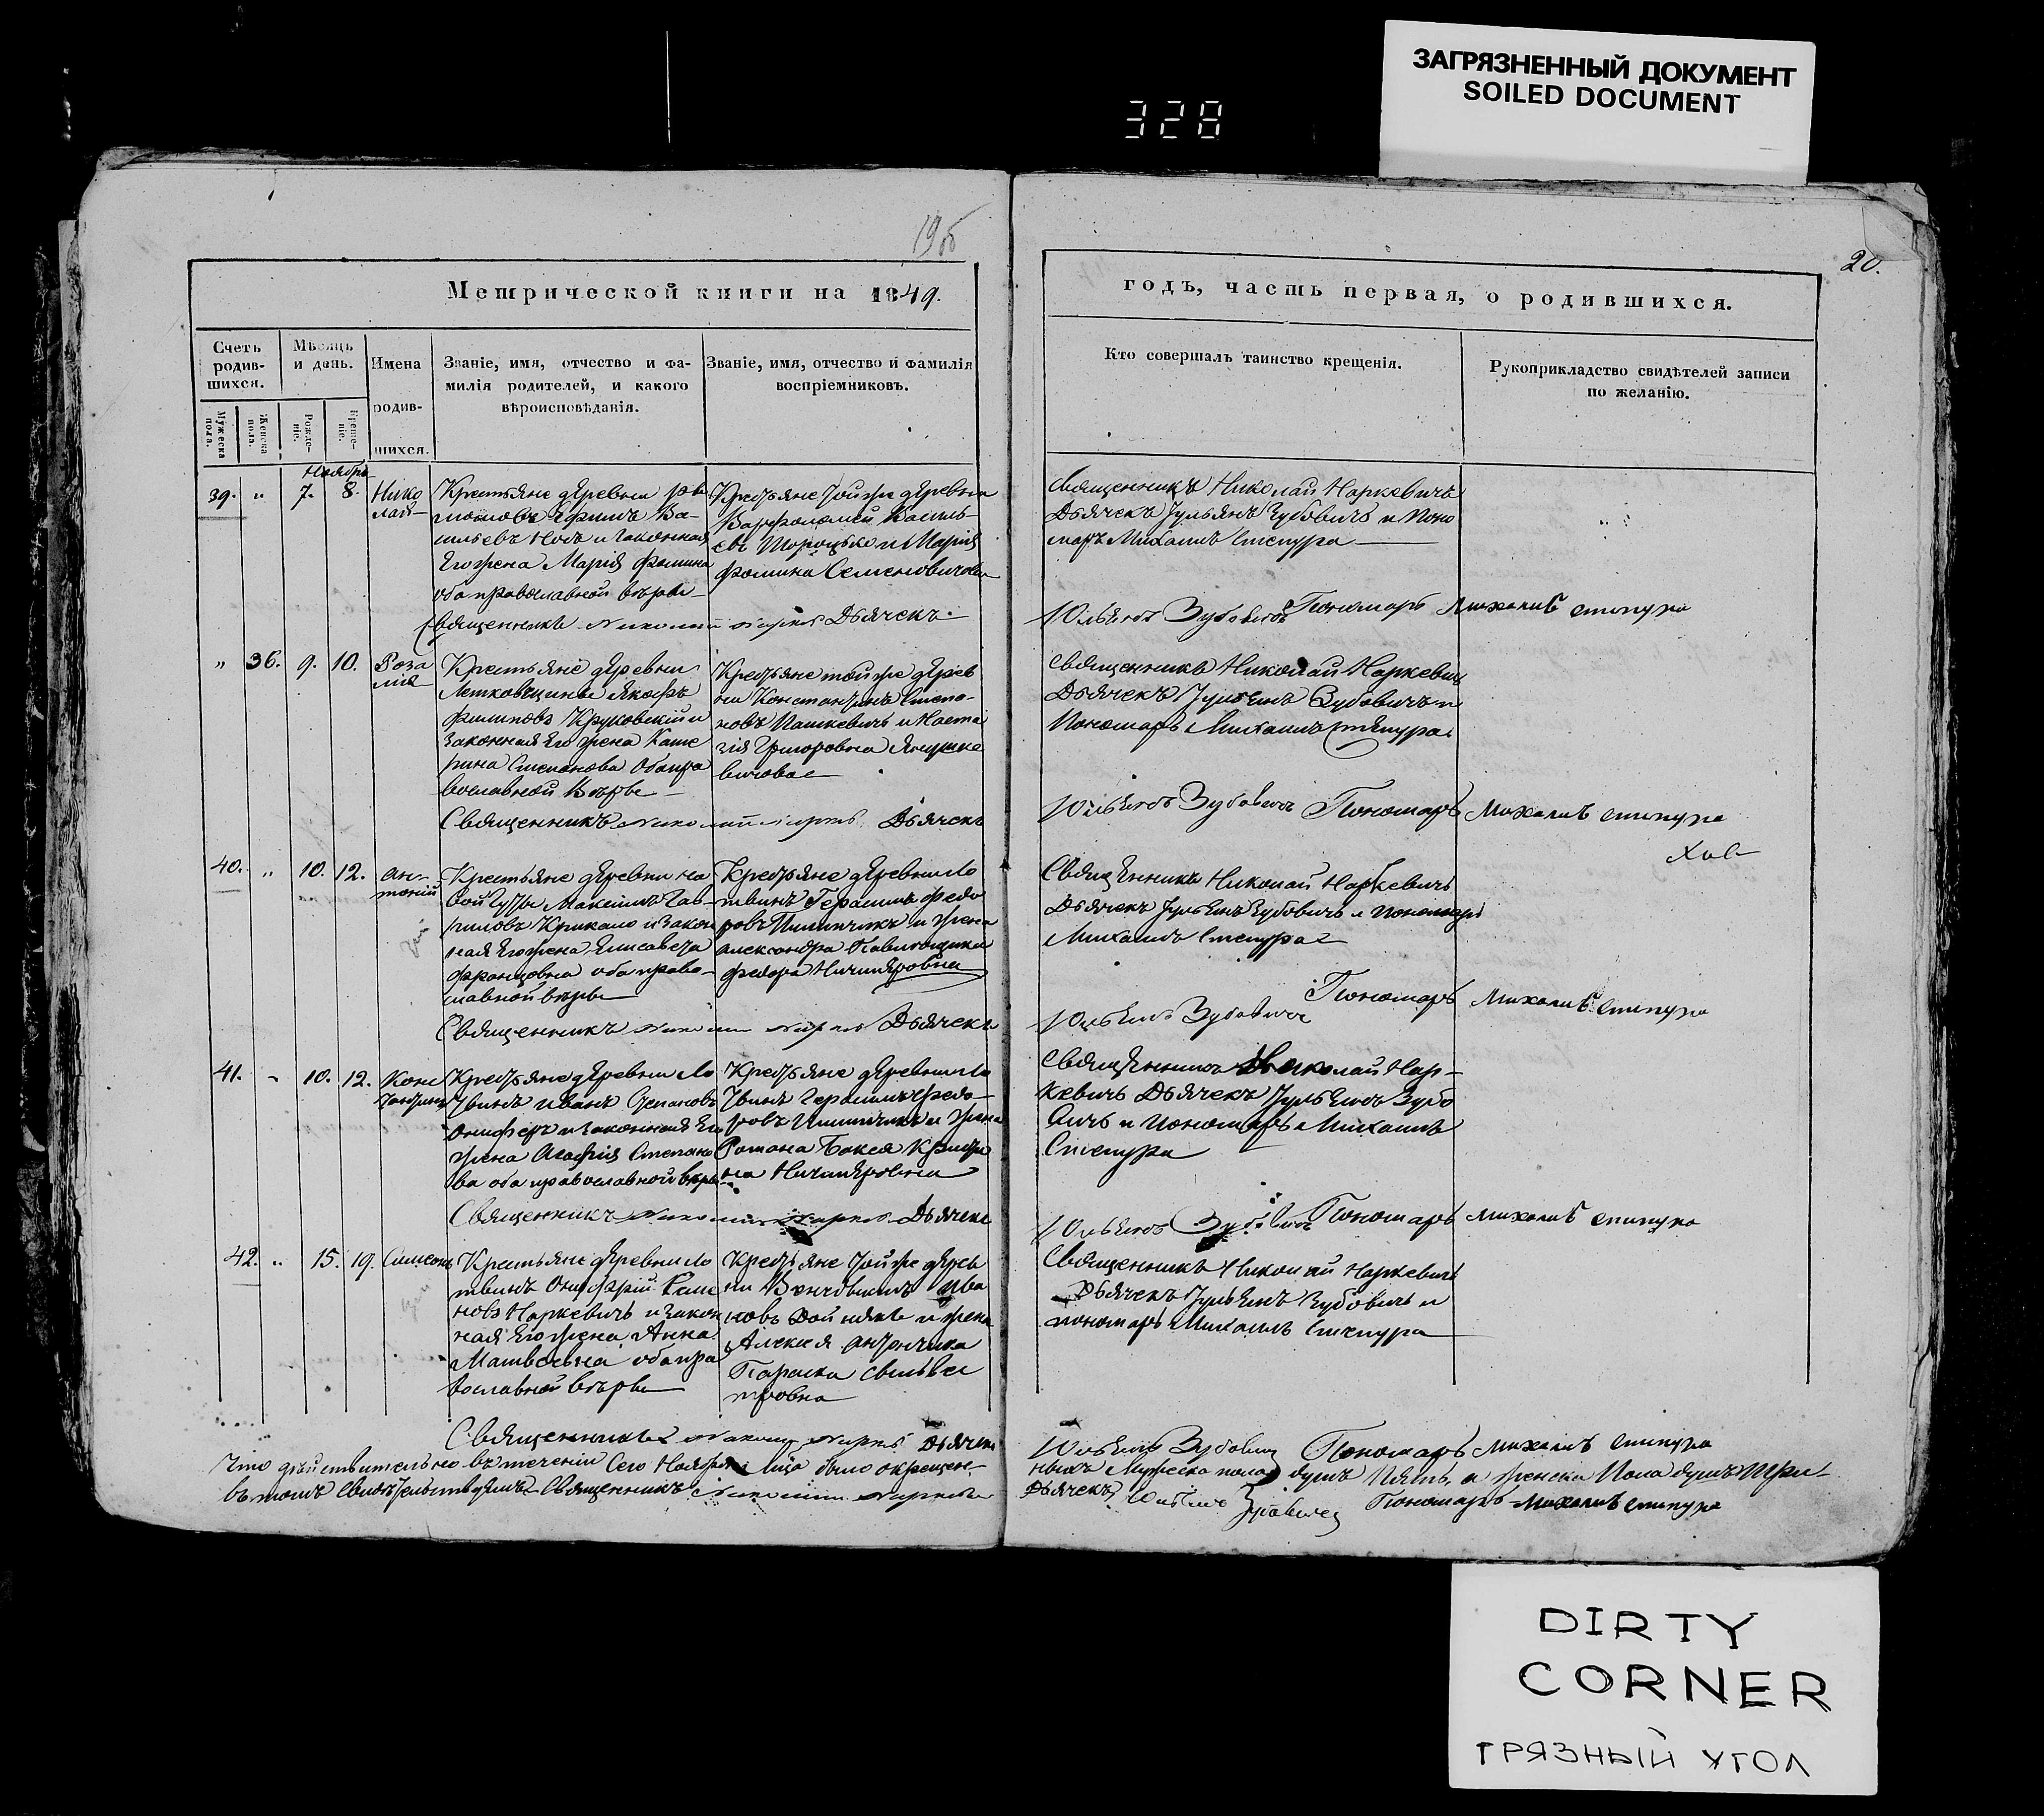 ЗАГРЯЗНЕННЫЙ ДОКУМЕНТ
SOILED DOCUMENT
328
20.
Метрической книги на 1849.
годъ, часть первая, о родившихся.
Счетъ родив-шихся.
Мѣсяцъ и день.
Имена родив-шихся.
Званіе, имя, отчество и фа-
милія родителей, и какого
вѣроисповѣданія.
Званіе, имя, отчество и фамилія
воспріемниковъ.
Кто совершалъ таинство крещенія.
Рукоприкладство свидѣтелей записи
по желанію.
Мужеска пола.
Женска пола.
Рожде-ніе.
Креще-ніе.
Ноябрь
39. " 7. 8. Нико
лай
Крестьяне деревни
Ефимъ Ва-
сильевъ и законная
Его жена Марія Фомина
оба православной вѣры
Крестьяне той же деревни
Варфоломей Василь-
евъ и Марія
Фомина Семеновичова
Священникъ Николай Наркевичъ
Дьячекъ Іульянъ Зубовичъ и Поно
марь Михаилъ Степура
Священникъ Николай Дьячекъ
Юльянъ Зубовичъ Пономарь Михаилъ Степура
" 36. 9. 10. Роза
лія
Крестьяне деревни
Лешковщины
Филиповъ Круковскій и
законная Его жена Кате
рина Степанова Оба пра
вославной Вѣры
Крестьяне той же дерев
ни Константинъ Степа-
новъ Пашкевичъ и Наста
зія Григоровна Янушке
вичова
Священникъ Николай Наркевичъ
Дьячекъ Іульянъ Зубовичъ и
Пономарь Михаилъ Степура
Священникъ Николай Дьячекъ
Юльянъ Зубовичъ Пономарь Михаилъ Степура
40. " 10. 12. Ан-
тоній
Крестьяне деревни Но
вой Гуты Максимъ Гав-
риловъ Крикало и закон
ная Его жена Елисавета
Францовна оба право-
славной вѣры
Крестьяне деревни Ло
твинъ Герасимъ Федо
ровъ и жена
Александра
Федора Ничипоровна
Священникъ Николай Наркевичъ
Дьячекъ Іульянъ Зубовичъ и Пономарь
Михаилъ Степура
Священникъ Николай Дьячекъ
Юльянъ Зубовичъ Пономарь Михаилъ Степура
41. " 10. 12. Конс
тантинъ
Крестьяне деревни Ло
твинъ Иванъ Степановъ
и законная Его
жена Агафія Степано
ва оба православной вѣры
Крестьяне деревни Ло
твинъ Герасимъ Федо-
ровъ и жена
Романа
на Ничипоровна
Священникъ Николай Нар-
кевичъ Дьячекъ Іульянъ Зубо
вичъ и Пономарь Михаилъ
Степура
Священникъ Николай Дьячекъ
Юльянъ Зубовичъ Пономарь Михаилъ Степура
42. " 15. 19. Симеонъ
Крестьяне деревни Ло
твинъ Онуфрій
новъ Наркевичъ и закон
ная Его жена Анна
Матвеевна оба пра
вославной вѣры
Крестьяне той же дерев
ни Ива
новъ и жена
Алексея
Параска Сильвес
тровна
Священникъ Николай Наркевичъ
Дьячекъ Іульянъ Зубовичъ и
пономарь Михаилъ Степура
Священникъ Николай Дьячекъ
Юльянъ Зубовичъ Пономарь Михаилъ Степура
Что дѣйствительно въ теченіи сего Ноября м-ца было окрещен-
ныхъ Мужеска пола душъ Пять, а женска Пола душъ Три
въ томъ свидѣтельствуемъ Священникъ Николай
Дьячекъ Юльянъ Зубовичъ Пономарь Михаилъ Степура
DIRTY
CORNER
ГРЯЗНЫЙ УГОЛ